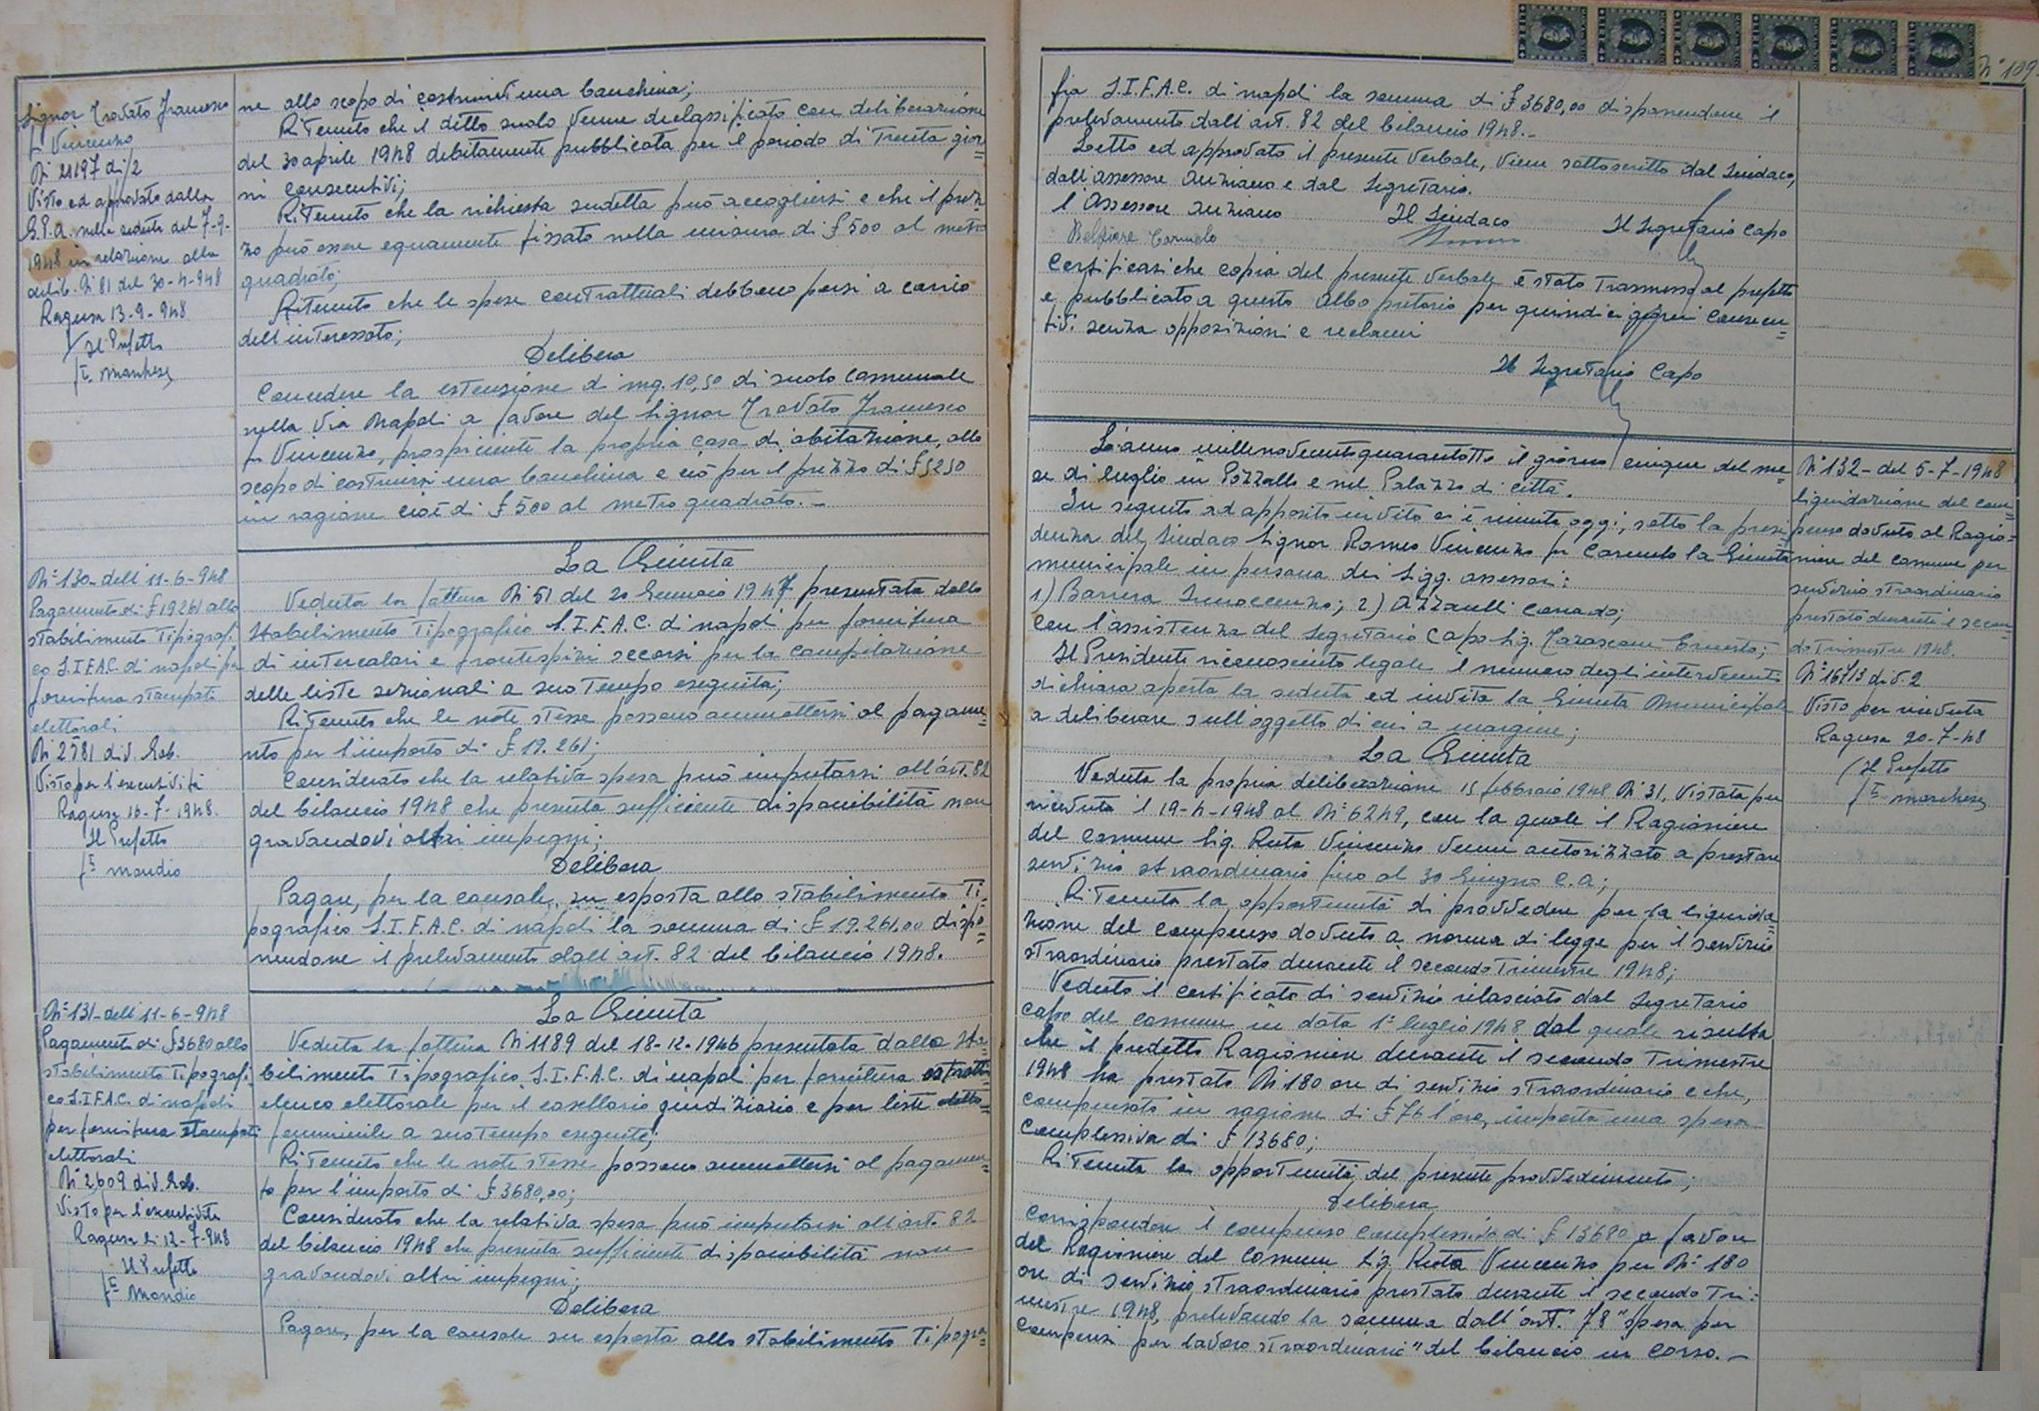 Signor Trovato Francesco
fu Vincenzo
N. 21197 div 2
Visto ed approvato dalla
G.P.A. nella seduta del 7-9-
1948 in relazione alla
delib. N. 81 del 30-4-948
Ragusa 13-9-948
Il Prefetto
ft. Marchese
ne allo scopo di costruirvi una banchina;
Ritenuto che il detto suolo venne declassificato con deliberazione
del 30 aprile 1948 debitamente pubblicata per il periodo di trenta gior=
ni consecutivi;
Ritenuto che la richiesta sudetta può accogliersi e che il prez
zo può essere equamente fissato nella misura di £ 500 al metro
quadrato;
Ritenuto che le spese contrattuali debbono porsi a carico
dell'interessato;
Delibera
Concedere la estensione di mq. 10,50 di suolo comunale
nella Via Napoli a favore del Signor Trovato Francesco
fu Vincenzo, prospiciente la propria casa di abitazione, allo
scopo di costruirvi una banchina e ciò per il prezzo di £ 5250
in ragione cioè di £ 500 al metro quadrato. -
N° 130 - dell'11-6-948
Pagamento di £ 19261 allo
stabilimento tipografi
co S.I.F.A.C. di Napoli per
fornitura stampati
elettorali
N. 2581 div. Gab.
Visto per l'esecutività
Ragusa 16-7-1948.
Il Prefetto
ft. Mondio
La Giunta
Veduta la fattura N. 51 del 20 Gennaio 1947 presentata dallo
Stabilimento Tipografico S.I.F.A.C. di Napoli per fornitura
di intercalari e frontespizi occorsi per la compilazione
delle liste sezionali a suo tempo eseguita;
Ritenuto che le note stesse possono ammettersi al pagame=
nto per l'importo di £ 19.261;
Considerato che la relativa spesa può imputarsi all'art. 82
del bilancio 1948 che presenta sufficiente disponibilità non
gravandovi altri impegni;
Delibera
Pagare, per la causale su esposta allo stabilimento Ti=
pografico S.I.F.A.C. di Napoli la somma di £ 19.261,00 dispo=
nendone il prelevamento dall'art. 82 del bilancio 1948.
N° 131 - dell'11-6-948
Pagamento di £ 3680 allo
stabilimento Tipografi
co S.I.F.A.C. di Napoli
per fornitura stampati
elettorali
N. 2609 div. Gab.
Visto per l'esecutività
Ragusa li 12-7-948
Il Prefetto
ft. Mondio
La Giunta
Veduta la fattura N. 1189 del 18-12-1946 presentata dallo Sta=
bilimento Tipografico S.I.F.A.C. di Napoli per fornitura estratti
elenco elettorale per il casellario giudiziario e per liste
femminile a suo tempo eseguite;
Ritenuto che le note stesse possono ammettersi al pagamen=
to per l'importo di £ 3680,00;
Considerato che la relativa spesa può imputarsi all'art. 82
del bilancio 1948 che presenta sufficiente disponibilità non
gravandovi altri impegni;
Delibera
Pagare, per la causale su esposta allo stabilimento tipogra=
N° 109
fia S.I.F.A.C. di Napoli la somma di £ 3680,00 disponendone il
prelevamento dall'art. 82 del bilancio 1948.-
Letto ed approvato il presente verbale, viene sottoscritto dal Sindaco,
dall'assessore anziano e dal Segretario.
l'Assessore anziano Il Sindaco Il Segretario Capo
Belfiore Carmelo
Certificasi che copia del presente verbale è stato trasmesso al prefetto
e pubblicato a questo albo pretorio per quindici giorni consecu=
tivi senza opposizioni e reclami
Il Segretario Capo
L'anno millenovecentoquarantotto il giorno cinque del me
se di luglio in Pozzallo e nel Palazzo di città.
In seguito ad apposito invito si è riunita oggi, sotto la presi
denza del Sindaco Signor Romeo Vincenzo fu Carmelo la Giunta
municipale in persona dei Sigg. assessori:
1) Barrera Innocenzo; 2) Azzarelli Corrado;
con l'assistenza del Segretario Capo Sig. Tarascone Ernesto;
Il Presidente riconosciuto legale il numero degli intervenuti
dichiara aperta la seduta ed invita la Giunta Municipale
a deliberare sull'oggetto di cui a margine;
La Giunta
Veduta la propria deliberazione 15 febbraio 1948 N. 31, vistata per
ricevuta il 19-4-1948 al N. 6249, con la quale il Ragioniere
del comune Sig. Ruta Vincenzo venne autorizzato a prestare
servizio straordinario fino al 30 Giugno c.a;
Ritenuta la opportunità di provvedere per la liquida=
zione del compenso dovuto a norma di legge per il servizio
straordinario prestato durante il secondo trimestre 1948;
Veduto il certificato di servizio rilasciato dal Segretario
capo del comune in data 1° luglio 1948 dal quale risulta
che il predetto Ragioniere durante il secondo trimestre
1948 ha prestato N. 180 ore di servizio straordinario e che,
compensato in ragione di £ 76 l'ora, importa una spesa
complessiva di £ 13680;
Ritenuta la opportunità del presente provvedimento;
Delibera
Corrispondere il compenso complessivo di £ 13680 a favore
del Ragioniere del comune Sig. Ruta Vincenzo per N° 180
ore di servizio straordinario prestato durante il secondo tri=
mestre 1948, prelevando la somma dall'art. 78 "Spesa per
compensi per lavoro straordinario" del bilancio in corso. -
N° 132 - del 5-7-1948
liquidazione del com=
penso dovuto al Ragio=
niere del comune per
servizio straordinario
prestato durante il secon=
do trimestre 1948.
N° 16713 div. 2
Visto per ricevuta
Ragusa 20-7-48
Il Prefetto
ft. Marchese